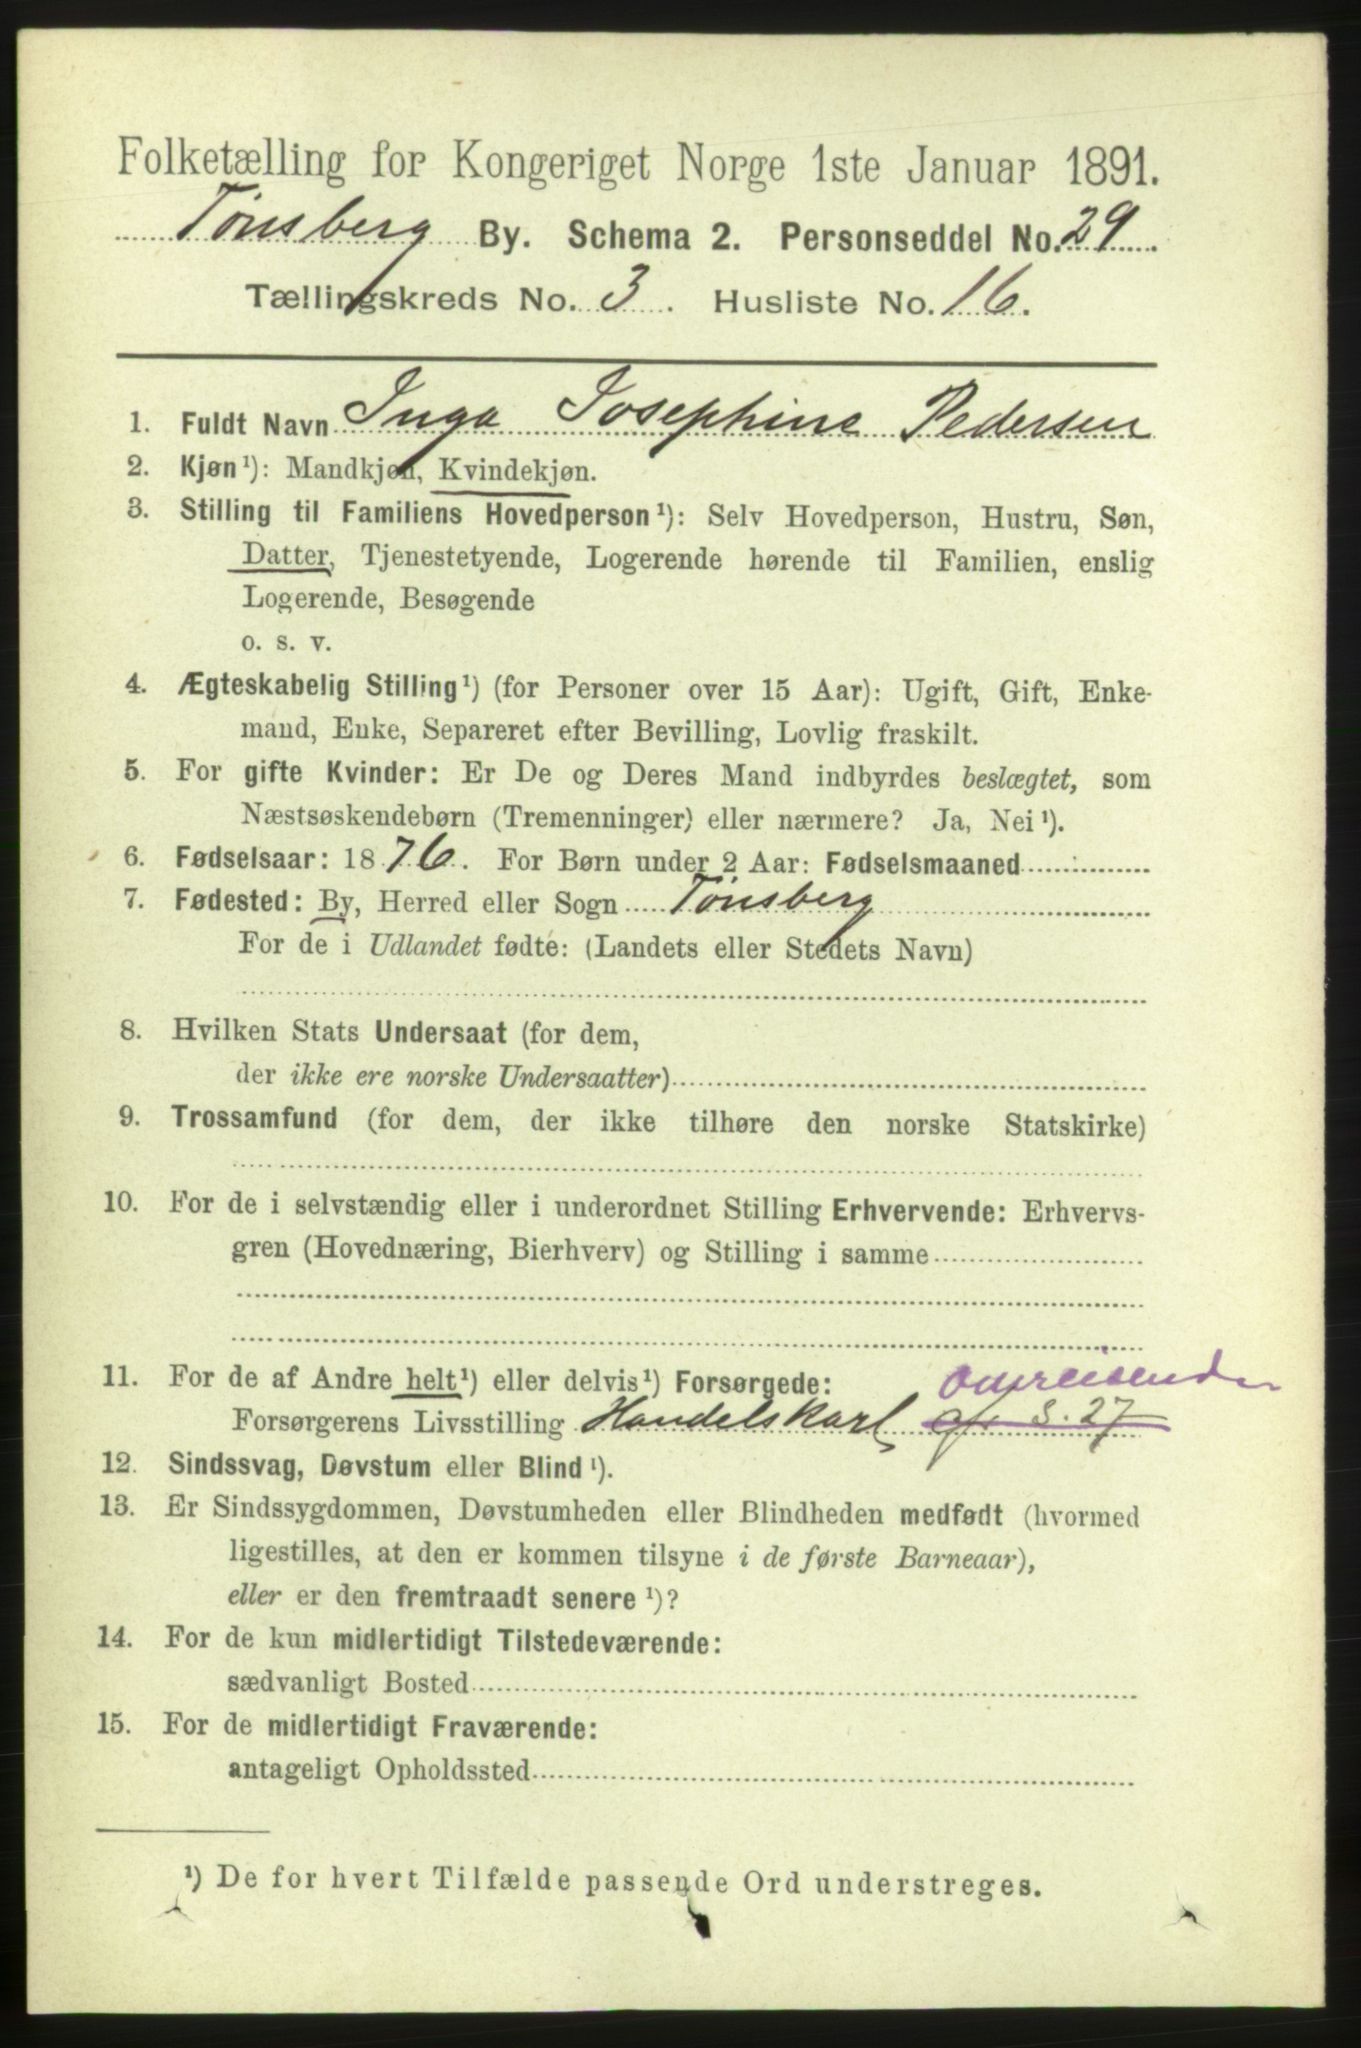 Folketælling for Kongeriget Norge 1ste Januar 1891.
Tønsberg By. Schema 2. Personseddel No. 29.
Tællingskreds No. 3. Husliste No. 16.
1. Fuldt Navn Inga Josephine Pedersen
2. Kjøn¹): Mandkjøn, Kvindekjøn.
3. Stilling til Familiens Hovedperson¹): Selv Hovedperson, Hustru, Søn,
Datter, Tjenestetyende, Logerende hørende til Familien, enslig
Logerende, Besøgende
o. s. v.
4. Ægteskabelig Stilling¹) (for Personer over 15 Aar): Ugift, Gift, Enke-
mand, Enke, Separeret efter Bevilling, Lovlig fraskilt.
5. For gifte Kvinder: Er De og Deres Mand indbyrdes beslægtet, som
Næstsøskendebørn (Tremenninger) eller nærmere? Ja, Nei¹).
6. Fødselsaar: 1876. For Børn under 2 Aar: Fødselsmaaned
7. Fødested: By, Herred eller Sogn Tønsberg
For de i Udlandet fødte: (Landets eller Stedets Navn)
8. Hvilken Stats Undersaat (for dem,
der ikke ere norske Undersaatter)
9. Trossamfund (for dem, der ikke tilhøre den norske Statskirke)
10. For de i selvstændig eller i underordnet Stilling Erhvervende: Erhvervs-
gren (Hovednæring, Bierhverv) og Stilling i samme
11. For de af Andre helt¹) eller delvis¹) Forsørgede: omreisende
Forsørgerens Livsstilling Handelskarl cfr S. 27
12. Sindssvag, Døvstum eller Blind¹).
13. Er Sindssygdommen, Døvstumheden eller Blindheden medfødt (hvormed
ligestilles, at den er kommen tilsyne i de første Barneaar),
eller er den fremtraadt senere¹)?
14. For de kun midlertidigt Tilstedeværende:
sædvanligt Bosted
15. For de midlertidigt Fraværende:
antageligt Opholdssted
¹) De for hvert Tilfælde passende Ord understreges.